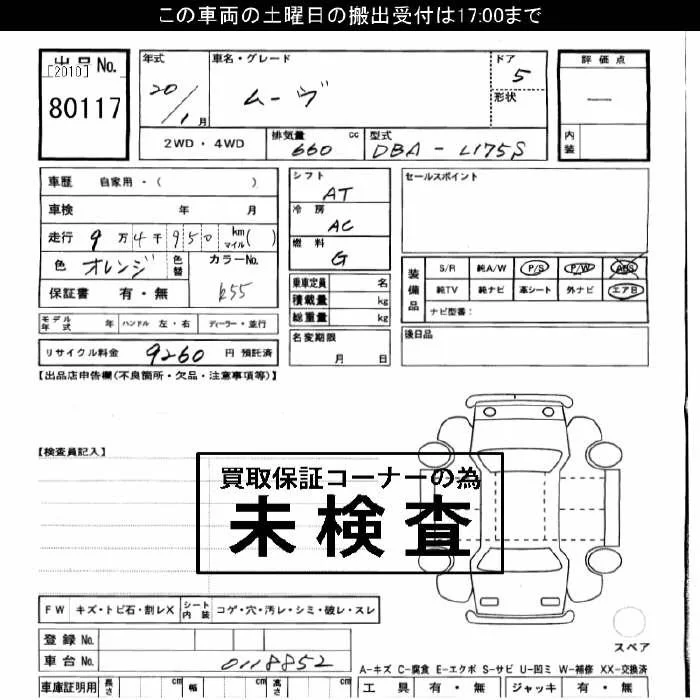 この車両の土曜日の搬出受付は17:00まで
出品No.
[2010]
80117
年式
20/1月
車名・グレード
ムーヴ
ドア
5
形状
評価点
―
内装
2WD・4WD
排気量 cc
660
型式
DBA-L175S
車歴 自家用・( )
車検 年 月
走行 9万4千950 km マイル( )
色 オレンジ 色替
カラーNo.
R55
保証書 有・無
シフト
AT
冷房
AC
燃料
G
乗車定員 名
積載量 kg
総重量 kg
セールスポイント
装備品
S/R 純A/W P/S P/W ABS
純TV 純ナビ 革シート 外ナビ エアB
ナビ型番:
モデル年式 年 ハンドル 左・右 ディーラー・並行
リサイクル料金 9260 円 預託済
名変期限
月 日
後日品
【出品店申告欄(不良箇所・欠品・注意事項等)】
【検査員記入】
買取保証コーナーの為
未検査
FW キズ・トビ石・割レX シート内装 コゲ・穴・汚レ・シミ・破レ・スレ
登録No.
車台No. 0118852
スペア
A-キズ C-腐食 E-エクボ S-サビ U-凹ミ W-補修 XX-交換済
車庫証明用 長さ cm 幅 cm 高さ cm
工具 有・無 ジャッキ 有・無